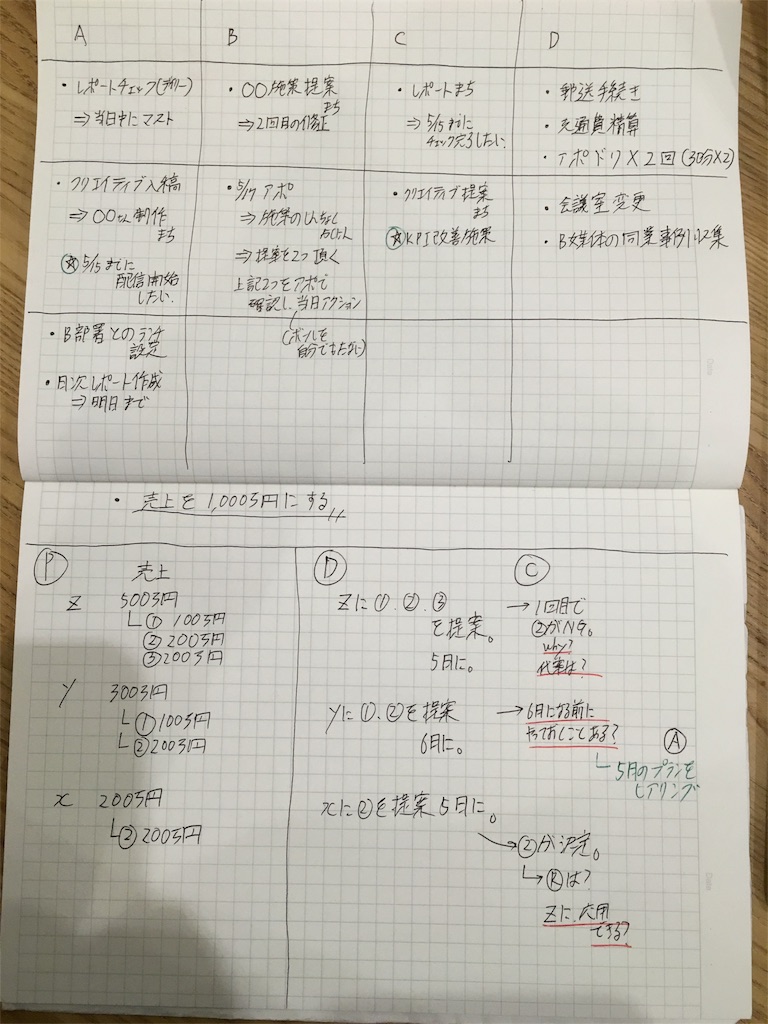 A
B
C
D
・レポートチェック(デイリー)
⇒当日中にマスト
・〇〇施策提案
まち
⇒2回目の修正
・レポートまち
⇒5/15までに
チェック完了したい。
・郵送手続き
・交通費精算
・アポドリ×2回(30分×2)
・クリエイティブ入稿
⇒〇〇さん制作
まち
☆5/15までに
配信開始
したい。
・5/17アポ
⇒施策のしんちょく
⇒提案を2つ頂く
上記2つをアポで
確認し、当日アクション
(ボールを
自分でもたない)
・クリエイティブ提案
まち
☆KPI改善施策
・会議室変更
・B媒体の同業事例収集
・B部署とのランチ
設定
・月次レポート作成
⇒明日まで
・売上を1,000万円にする
P
売上
Z 500万円
└① 100万円
②200万円
③200万円
Y 300万円
└①100万円
└②200万円
x 200万円
└②200万円
D
Zに①.②.③
を提案。
5月に。
Yに①、②を提案
6月に。
xに②を提案5月に。
C
→1回目で
②がNG。
why?
代案は?
→6月になる前に
やっておくことある?
A
└5月のプランを
ヒアリング
→②が決定。
└→Rは?
Zに応用
できる?